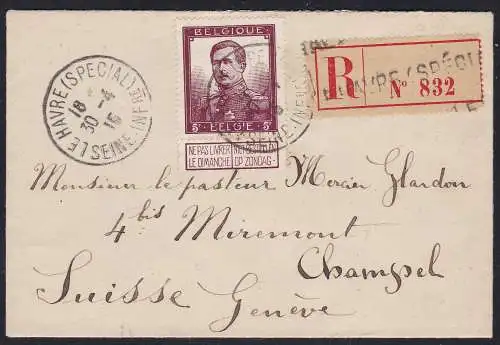 LE HAVRE (SPECIAL)
18
30 - 4
16
SEINE INFRE
BELGIQUE
5F BELGIË 5F
NE PAS LIVRER
LE DIMANCHE
OP ZONDAG
R
LE HAVRE (SPÉCI
N° 832
Monsieur le pasteur Mercier Glardon
4 bis Miremont
Champel
Suisse Genève